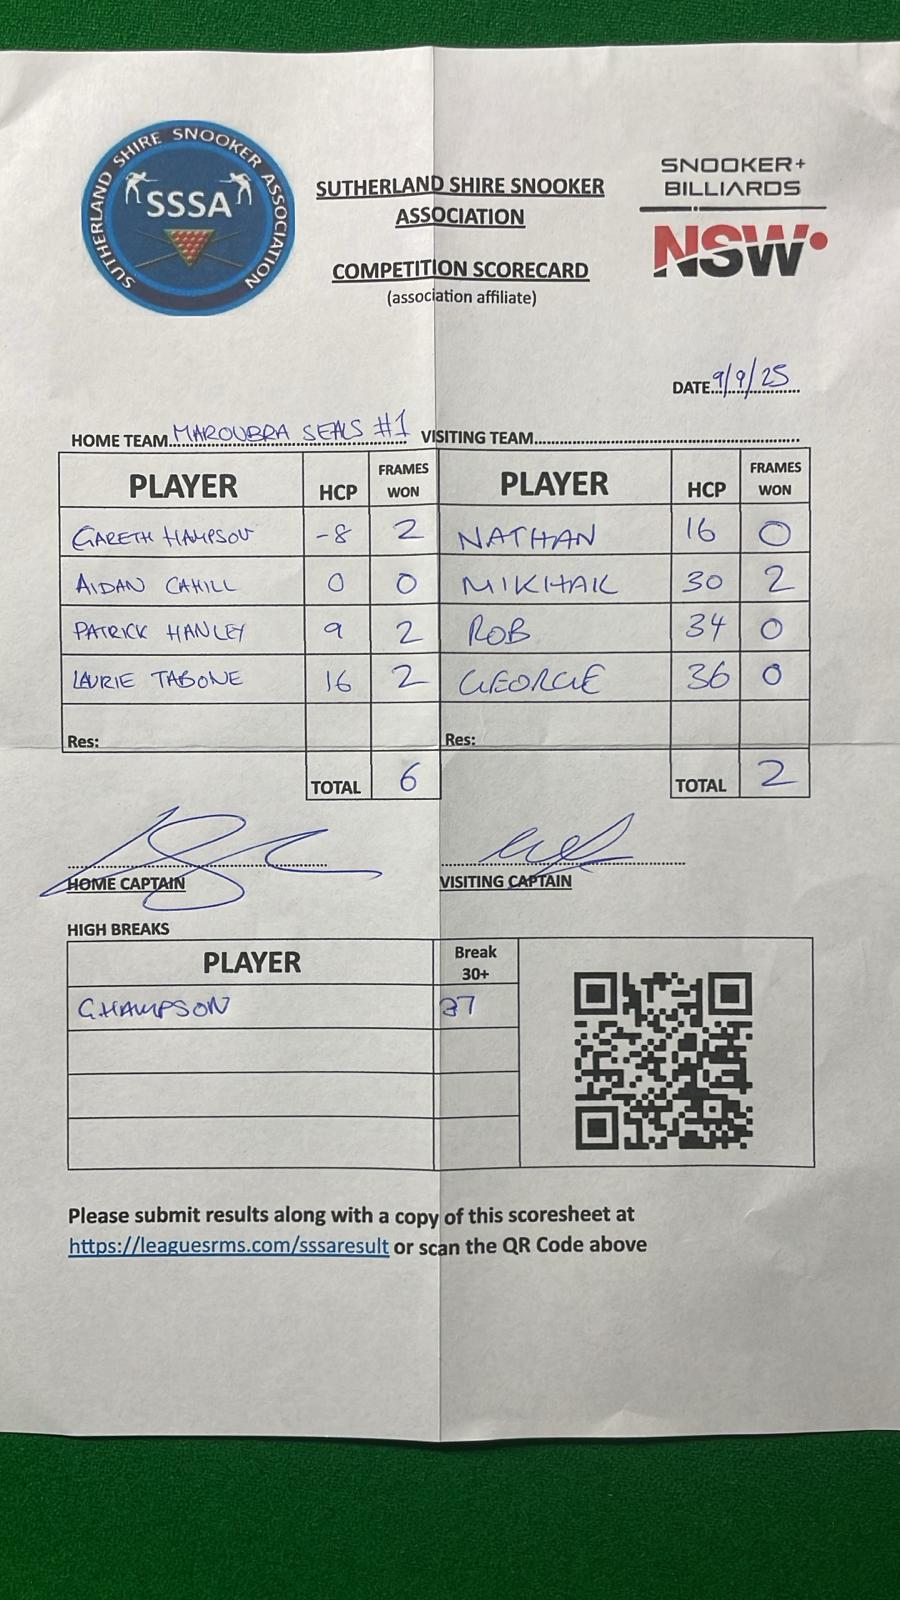 SUTHERLAND SHIRE SNOOKER ASSOCIATION
SSSA
SUTHERLAND SHIRE SNOOKER
ASSOCIATION
COMPETITION SCORECARD
(association affiliate)
SNOOKER+
BILLIARDS
NSW
DATE 9/9/25
HOME TEAM MAROUBRA SEALS #1 VISITING TEAM
PLAYER HCP FRAMES WON PLAYER HCP FRAMES WON
GARETH HAMPSON -8 2 NATHAN 16 0
AIDAN CAHILL 0 0 MIKHAIL 30 2
PATRICK HANLEY 9 2 ROB 34 0
LAURIE TABONE 16 2 GEORGE 36 0
Res: Res:
TOTAL 6 TOTAL 2
HOME CAPTAIN VISITING CAPTAIN
HIGH BREAKS
PLAYER Break 30+
G.HAMPSON 37
Please submit results along with a copy of this scoresheet at
https://leaguesrms.com/sssaresult or scan the QR Code above